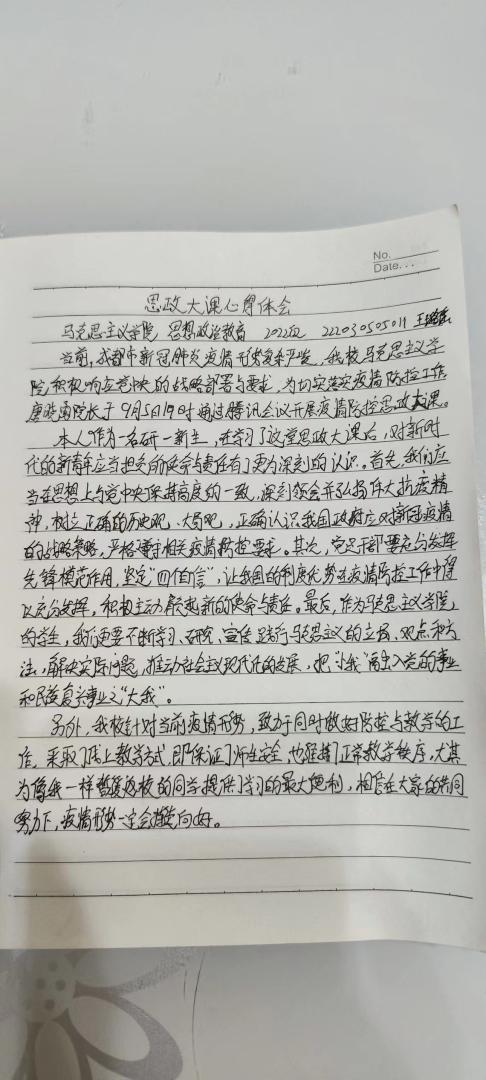 No.
Date...
思政大课心得体会
马克思主义学院 思想政治教育 2022级 222030505011
当前,成都市新冠肺炎疫情形势复杂严峻,我校马克思主义学
院积极响应党中央的战略部署与要求,为切实落实疫情防控工作
院长于9月5日19时通过腾讯会议开展疫情防控思政大课。
本人作为一名研一新生,在学习了这堂思政大课后,对新时
代的新青年应当担负的使命与责任有了更为深刻的认识。首先,我们应
当在思想上与党中央保持高度的一致,深刻领会并弘扬伟大抗疫精
神,树立正确的历史观、大局观,正确认识我国政府应对新冠疫情
的战略策略,严格遵守相关疫情防控要求。其次,党员干部要充分发挥
先锋模范作用,坚定"四个自信",让我国的制度优势在疫情防控工作中得
以充分发挥,积极主动承担起新的使命与责任。最后,作为马克思主义学院
的学生,我们更要不断学习、研究、宣传、践行马克思主义的立场、观点和方
法,解决实际问题,推动社会主义现代化的发展,把"小我"融入党的事业
和民族复兴事业之"大我"。
另外,我校针对当前疫情形势,致力于同时做好防控与教学的工
作,采取了线上教学方式,即保证了师生安全,也维持了正常教学秩序,尤其
为像我一样暂缓返校的同学提供了学习的最大便利,相信在大家的共同
努力下,疫情形势一定会持续向好。